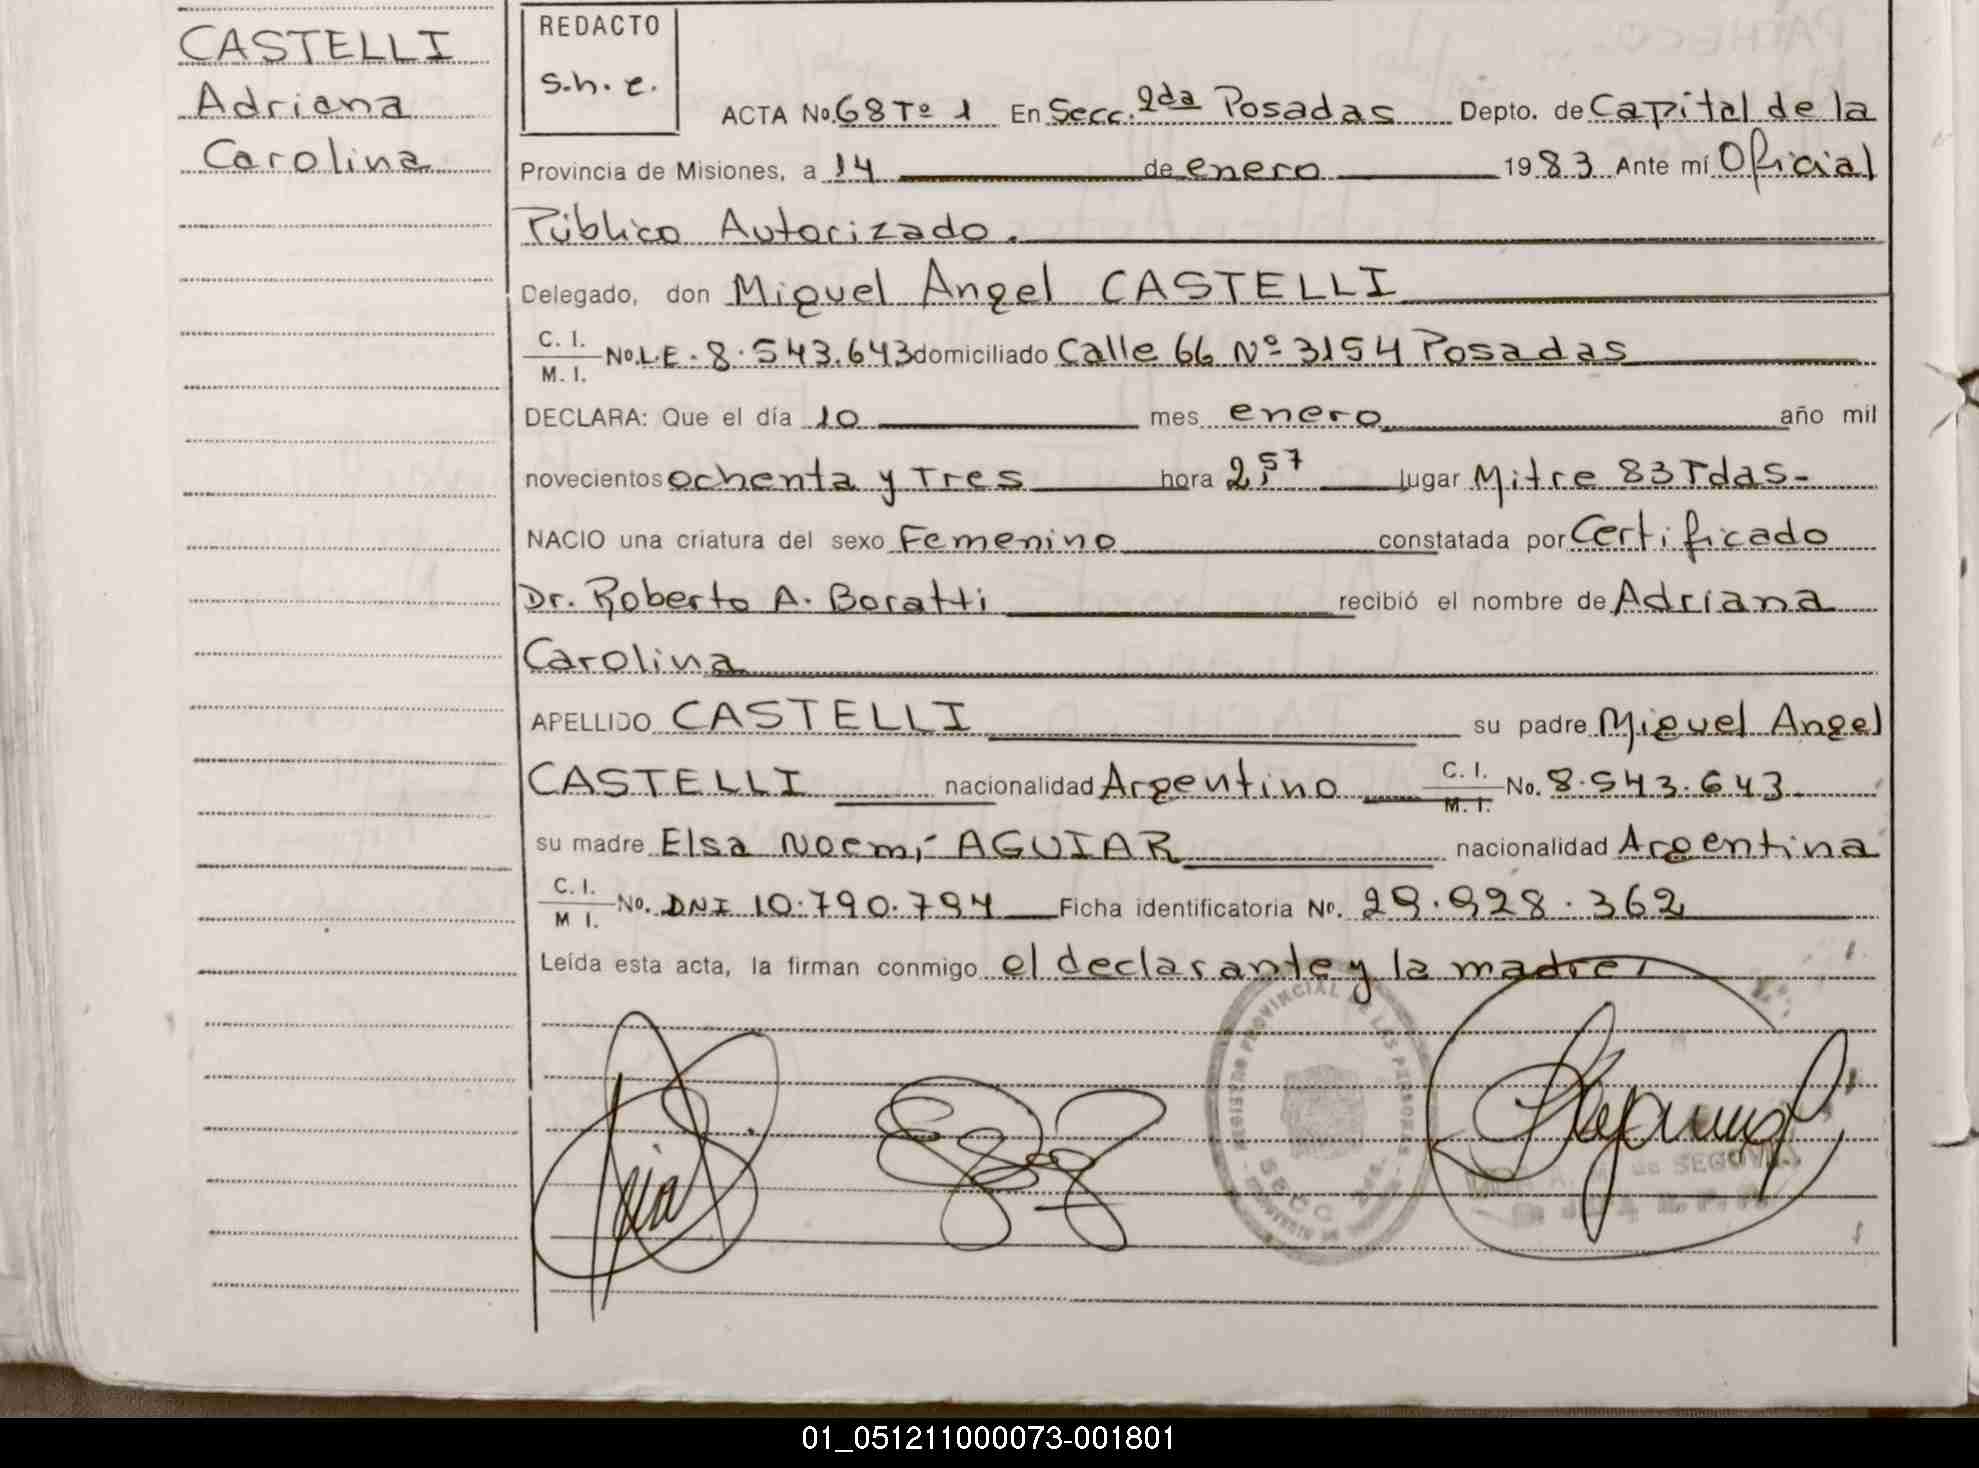 CASTELLI
Adriana
Carolina
REDACTO
s.h.e.
ACTA No. 68 Tº 1 En Secc. 2da Posadas Depto. de Capital de la
Provincia de Misiones, a 14 de enero 1983 Ante mí Oficial
Público Autorizado.
Delegado, don Miguel Angel CASTELLI
C. I.
M. I. No. L.E. 8.543.643 domiciliado Calle 66 Nº 3154 Posadas
DECLARA: Que el día 10 mes enero año mil
novecientos ochenta y Tres hora 2,57 lugar Mitre 83 Pdas-
NACIO una criatura del sexo Femenino constatada por Certificado
Dr. Roberto A. Boratti recibió el nombre de Adriana
Carolina
APELLIDO CASTELLI su padre Miguel Angel
CASTELLI nacionalidad Argentino C. I. M. I. No. 8.543.643
su madre Elsa Noemí AGUIAR nacionalidad Argentina
C. I.
M I. No. DNI 10.790.794 Ficha identificatoria No. 29.928.362
Leída esta acta, la firman conmigo el declarante y la madre,
REGISTRO PROVINCIAL DE LAS PERSONAS
SECC. 2da.
de SEGOVIA
01_051211000073-001801